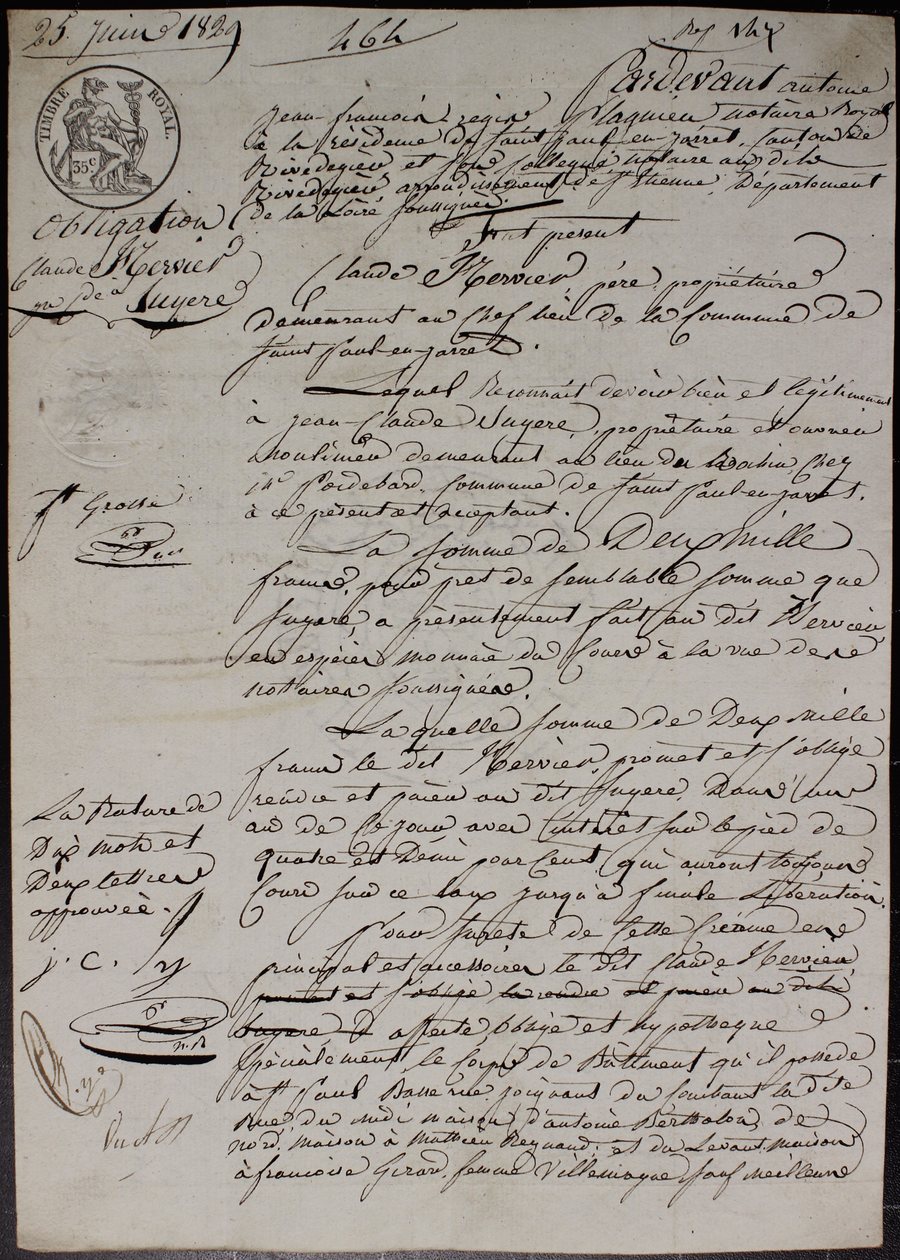 25. Juin 1829
464
TIMBRE ROYAL.
35 c
Pardevant antoine
Jean-françois-régis Flaquieu notaire Royal
à la résidence de Saint Paul-en-jarret, Canton de
Rivedegier et son Collegue notaire au dit
Rivedegier arrondissement de St Etienne, Département
de la Loire soussignés.
Obligation
Claude Hervier
à
Suyere
Fut présent
Claude Hervier, père, propriétaire
demeurant au Chef lieu de la Commune de
Saint Paul-en-jarret.
Lequel Reconnait devoir bien et légitimement
à Jean-Claude Suyere, propriétaire et ouvrier
moulinier demeurant au lieu du
Commune de Saint Paul-en-jarret.
à ce présent et acceptant.
Grosse
La somme de Deux mille
francs, pour pret de semblable somme que
Suyere, a présentement fait au dit Hervier
en espèces monnaie du Cours à la vue des
nottaires soussignés.
La quelle somme de Deux mille
francs le dit Hervier, promet et s'oblige
rendre et païer au dit Suyere, Dans un
an de Ce jour avec intérêt sur le pied de
quatre et Demi pour Cent, qui auront toujours
Cours sur ce taux jusqu'à finale Libération.
La Rature de
Dix mots et
Deux lettres
approuvée.
J. C. hy
Pour sureté de Cette Créance en
principal et accessoires le dit Claude Hervier
promet et s'oblige la rendre et païer au dit
Suyere, affecte, oblige et hypotheque
Spécialement, le Corps de Bâtiment qu'il possede
à St Paul Basse rue, joignant du Couchant la dite
Rue, du midi maison d'antoine Bertholon, de
nord, maison à Mathieu Reynaud; et du Levant maison
à françoise Girard, femme Villemagne, sauf meilleure